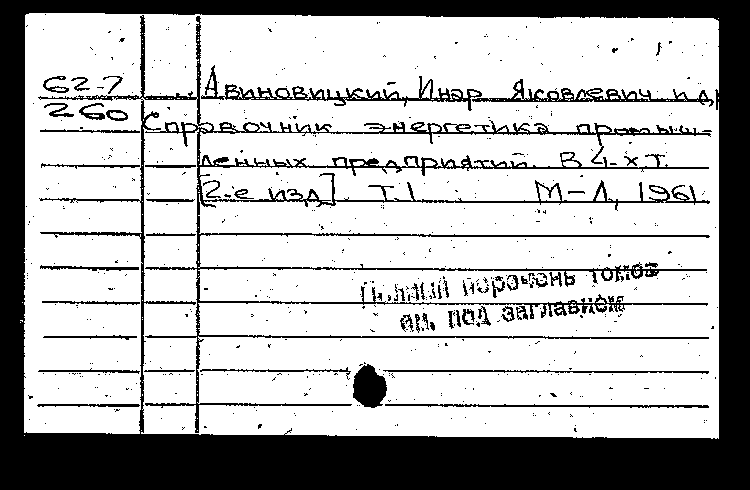 62-7 Авиновицкий, Инар Яковлевич и др
260 Справочник энергетика промыш-
ленных предприятий. В 4-х т.
[2-е изд] Т.1 М-Л, 1961
Полный перечень томов
см. под заглавием